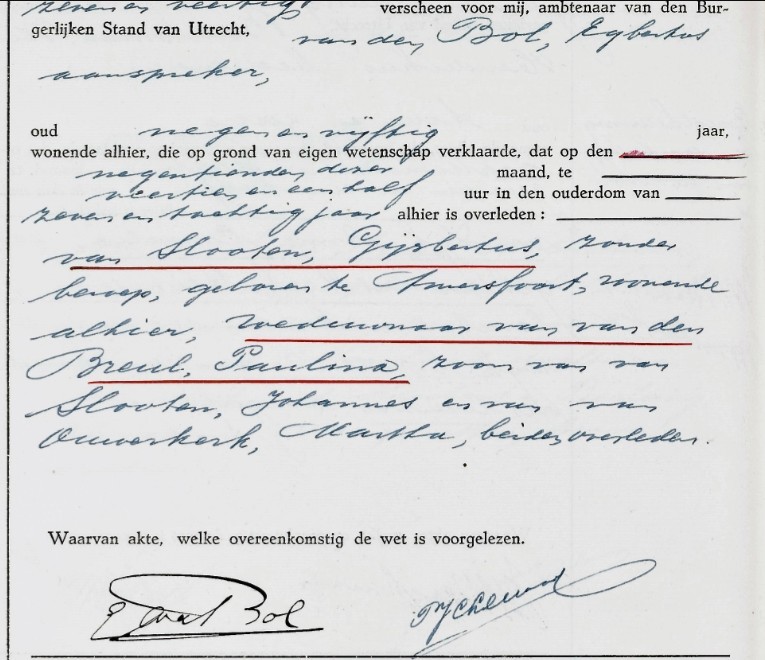 zeven en veertig verscheen voor mij, ambtenaar van den Bur-
gerlijken Stand van Utrecht, van den Bol, Egbertus
aanspreker,
oud negen en vijftig jaar,
wonende alhier, die op grond van eigen wetenschap verklaarde, dat op den
negentienden dezer maand, te
veertien en een half uur in den ouderdom van
zeven en tachtig jaar alhier is overleden :
van Slooten, Gijsbertus, zonder
beroep, geboren te Amersfoort, wonende
alhier, weduwnaar van van den
Breul, Paulina, zoon van van
Slooten, Johannes en van van
Ouwerkerk, Martha, beiden overleden.
Waarvan akte, welke overeenkomstig de wet is voorgelezen.
Bol